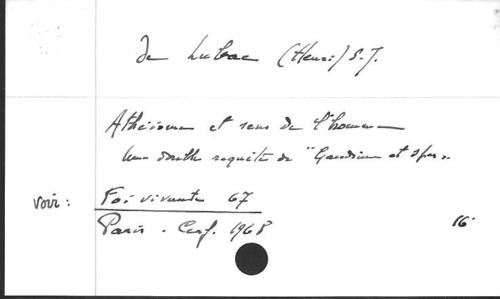 de Lubac (Henri) S.J.
Athéisme et sens de l'homme
Une double requête de "Gaudium et spes"
voir : Foi vivante 67
Paris - Cerf. 1968 16°